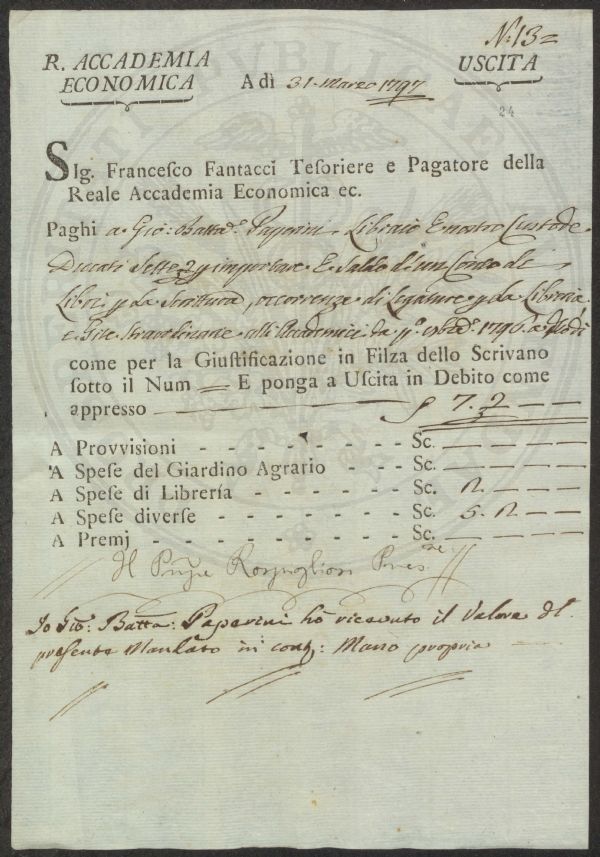 N.13=
R. ACCADEMIA
ECONOMICA
A dì 31. Marzo 1797
USCITA
24
SIg. Francesco Fantacci Tesoriere e Pagatore della
Reale Accademia Economica ec.
Paghi a Gio: Batta. Paperini Libraio E nostro Custode
Ducati Sette 2 importare E Saldo d'un Conto di
Libri da Scrittura, occorrenze di Legature da Libreria
e Gite straordinarie alli Accademici da 1796. a
come per la Giustificazione in Filza dello Scrivano
sotto il Num = E ponga a Uscita in Debito come
appresso — 7. 2 — —
A Provvisioni - - - Sc. — — —
A Spese del Giardino Agrario - - - Sc. — — —
A Spese di Librería - - - Sc. 2. — —
A Spese diverse - - - Sc. 5. 2 — —
A Premj - - - Sc. — — —
Il Rospigliosi Pres.te
Io Gio: Batta: Paperini hò riceuuto il Valore del
presente Mandato in cont: Mano propria